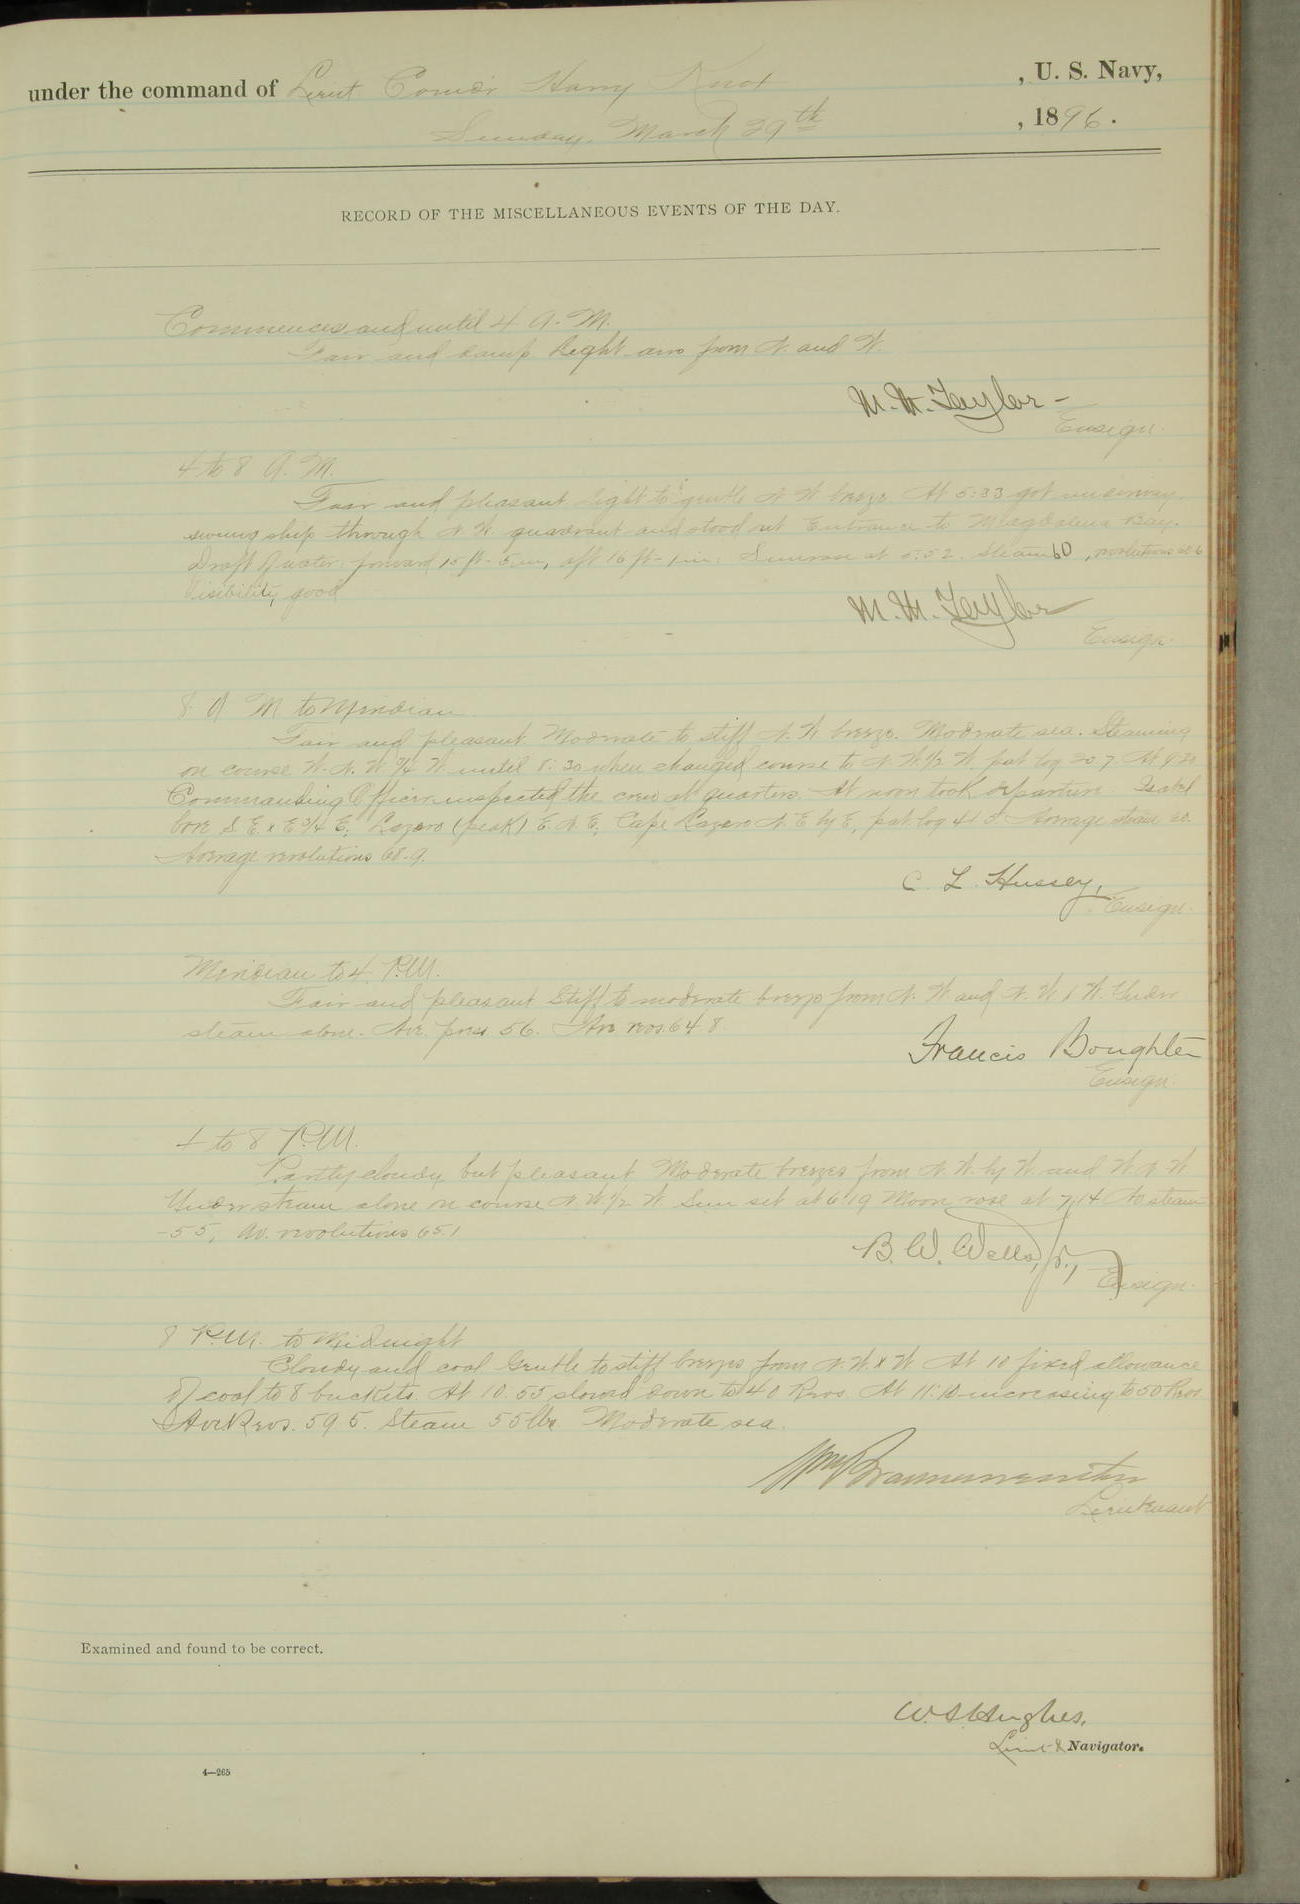 under the command of Lieut Comd'r Harry Knox , U. S. Navy,
Sunday, March 29th , 1896.
RECORD OF THE MISCELLANEOUS EVENTS OF THE DAY.
Commences and until 4 A. M.
Fair and damp. Light airs from N. and W.
M. M. Taylor -
Ensign.
4 to 8 A. M.
Fair and pleasant. Light to gentle N W breeze. At 5:33 got underway,
swung ship through N. W. quadrant and stood out Entrance to Magdalena Bay.
Draft of water: forward 15 ft - 5 in, aft 16 ft - 1 in: Sunrose at 5:52. Steam 60, revolutions
Visibility, good
M. M. Taylor
Ensign.
8 A M to Meridian
Fair and pleasant. Moderate to stiff N. W breeze. Moderate sea. Steaming
on course W. N. W 3/4 W. until 8:30 when changed course to N W 1/2 W. pat log 20 7. At
Commanding Officer inspected the crew at quarters. At noon took departure.
bore S E x E 3/4 E, Lazaro (peak) E. N E, Cape Lazaro N. E by E, pat log 41 5. Average steam
Average revolutions 68.9.
C. L. Hussey,
Ensign.
Meridian to 4 P.M.
Fair and pleasant. Stiff to moderate breeze from N. W and N. W x W. Under
steam alone. Ave. press 56. Ave revs 64 8
Francis Boughter
Ensign.
4 to 8 P.M.
Partly cloudy but pleasant. Moderate breezes from N. W. by W. and W. N W
Under steam alone on course N W 1/2 W. Sun set at 6:19 Moon rose at 7:14 Av steam
55, Av. revolutions 65.1
B. W. Wells, Jr.,
Ensign.
8 P.M. to Midnight
Cloudy and cool. Gentle to stiff breezes from N. W x W. At 10 fixed allowance
of coal to 8 buckets. At 10.55 slowed down to 40 Revs. At 11:10 increasing to 50 Revs
Ave Revs. 59 5. Steam 55 lbs Moderate sea.
Wm Braunersreuther
Lieutenant
Examined and found to be correct.
W. S. Hughes,
Lieut & Navigator.
4—265